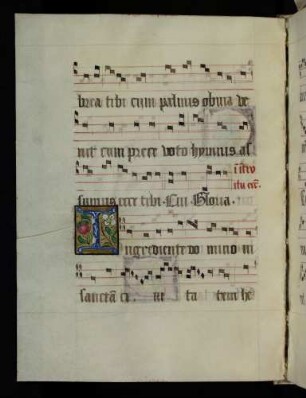 brea tibi cum palmis obuia ve
nit cum prece voto hymnis as
in intro
itu eccē.
sumus ecce tibi. Cui Gloria.
Ingrediente domino in
sanctā ci ui ta tem he